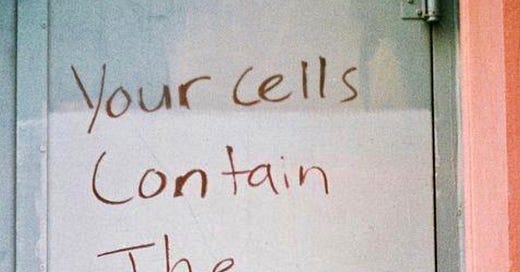 Your cells
Contain
The